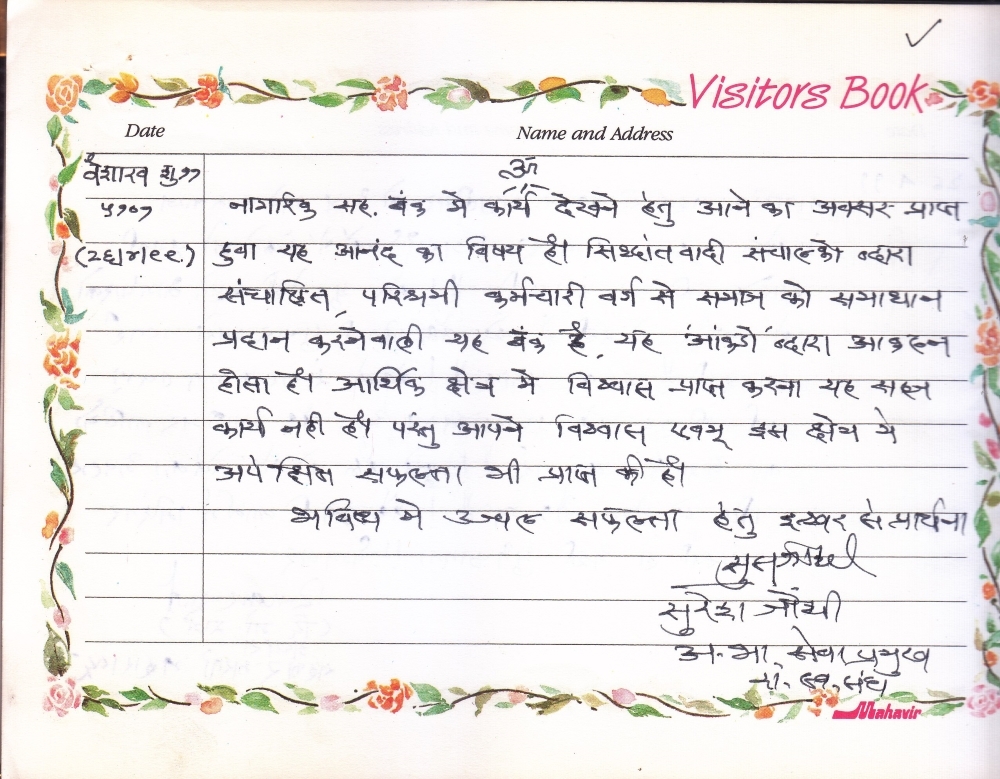 Visitors Book
Date Name and Address
वैशाख शु ११ ॐ
५१०१ नागरिक सह. बैंक मे कार्य देखने हेतु आने का अवसर प्राप्त
(२६/४/९९.) हुवा यह आनंद का विषय है। सिध्दांतवादी संचालको व्दारा
संचालित, परिश्रमी कर्मचारी वर्ग से समाज को समाधान
प्रदान करनेवाली यह बैंक है, यह आंकडो व्दारा आकलन
होता है। आर्थिक क्षेत्र मे विश्वास प्राप्त करना यह सहज
कार्य नही है। परंतु आपने विश्वास एवम् इस क्षेत्र मे
अपेक्षित सफलता भी प्राप्त की है।
भविष्य मे उज्वल सफलता हेतु इश्वर से प्रार्थना
सुरेश जोशी
अ. भा. सेवा प्रमुख
रा. स्व. संघ
Mahavir